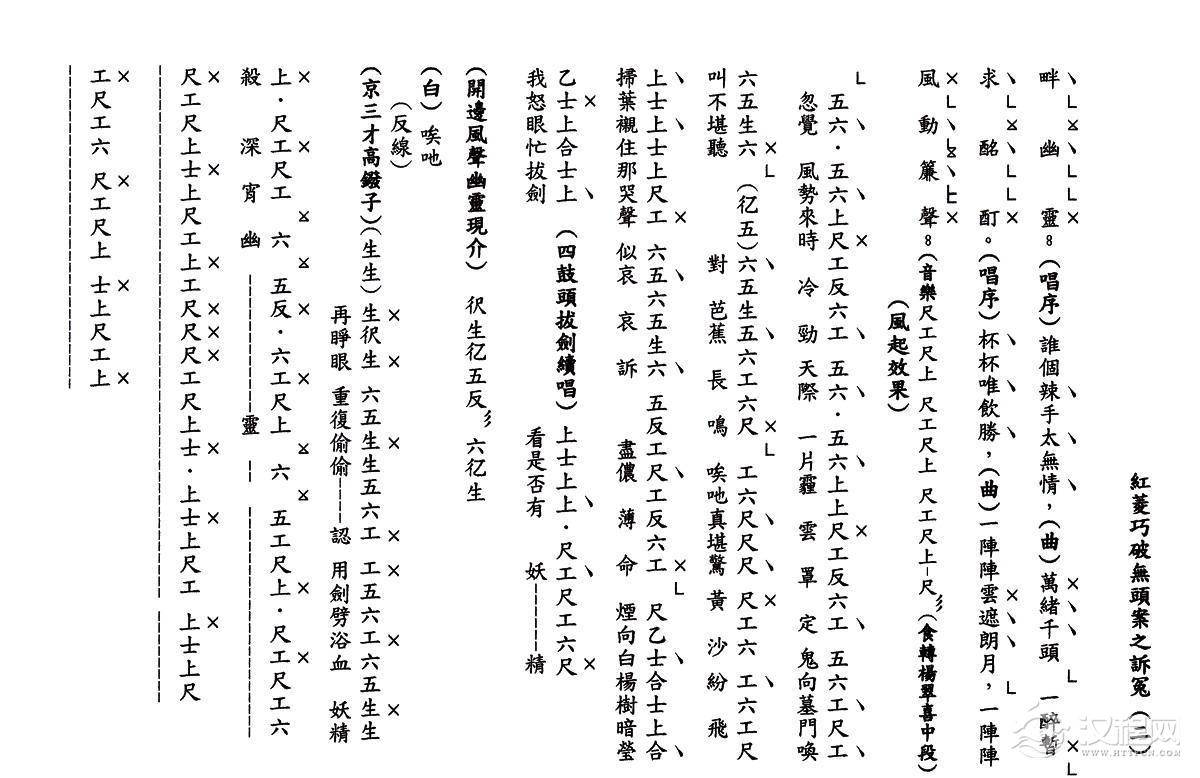 紅菱巧破無頭案之訴冤（二）
畔幽靈。（唱序）誰個辣手太無情，（曲）萬緒千頭 一醉暫
求酩酊。（唱序）杯杯唯飲勝，（曲）一陣陣雲遮朗月，一陣陣
風動簾聲。（音樂尺工尺上 尺工尺上 尺工尺上－尺（食轉楊翠喜中段）
（風起效果）
五六・五六上尺工反六工 五六・五六上上尺工反六工 五六工尺工
忽覺 風勢來時 冷 勁 天際 一片霾 雲 罩 定 鬼向墓門喚
六五生六（亿五）六五生五六工六尺 工六尺尺尺 尺工六 工六工尺
叫不堪聽 對 芭蕉 長 鳴 唉吔真堪驚 黃 沙 紛 飛
上士上士上尺工 六五六五生六 五反工尺工反六工 尺乙士合士上合
掃葉襯住那哭聲 似哀 哀 訴 盡儂 薄 命 煙向白楊樹暗瑩
乙士上合士上（四鼓頭拔劍續唱）上士上上・尺工尺工六尺
我怒眼忙拔劍 看是否有 妖－－－－－－精
（開邊風聲幽靈現介）伬生亿五反彡六亿生
（白）唉吔
（反線）
（京三才高鑼子）（生生）生伬生 六五生生五六工 工五六工六五生生
再睜眼 重復偷偷－－－認 用劍劈浴血 妖精
上・尺工尺工 六 五反・六工尺上 六 五工尺上・尺工尺工六
殺 深 宵 幽 －－－－－－－－靈－ －－－－－－－－－－－－－
尺工尺上士上尺工上工尺尺尺工尺上士・上士上尺工 上士上尺
工尺工六 尺工尺上 士上尺工上
汉程网
WWW.HTTPCN.COM